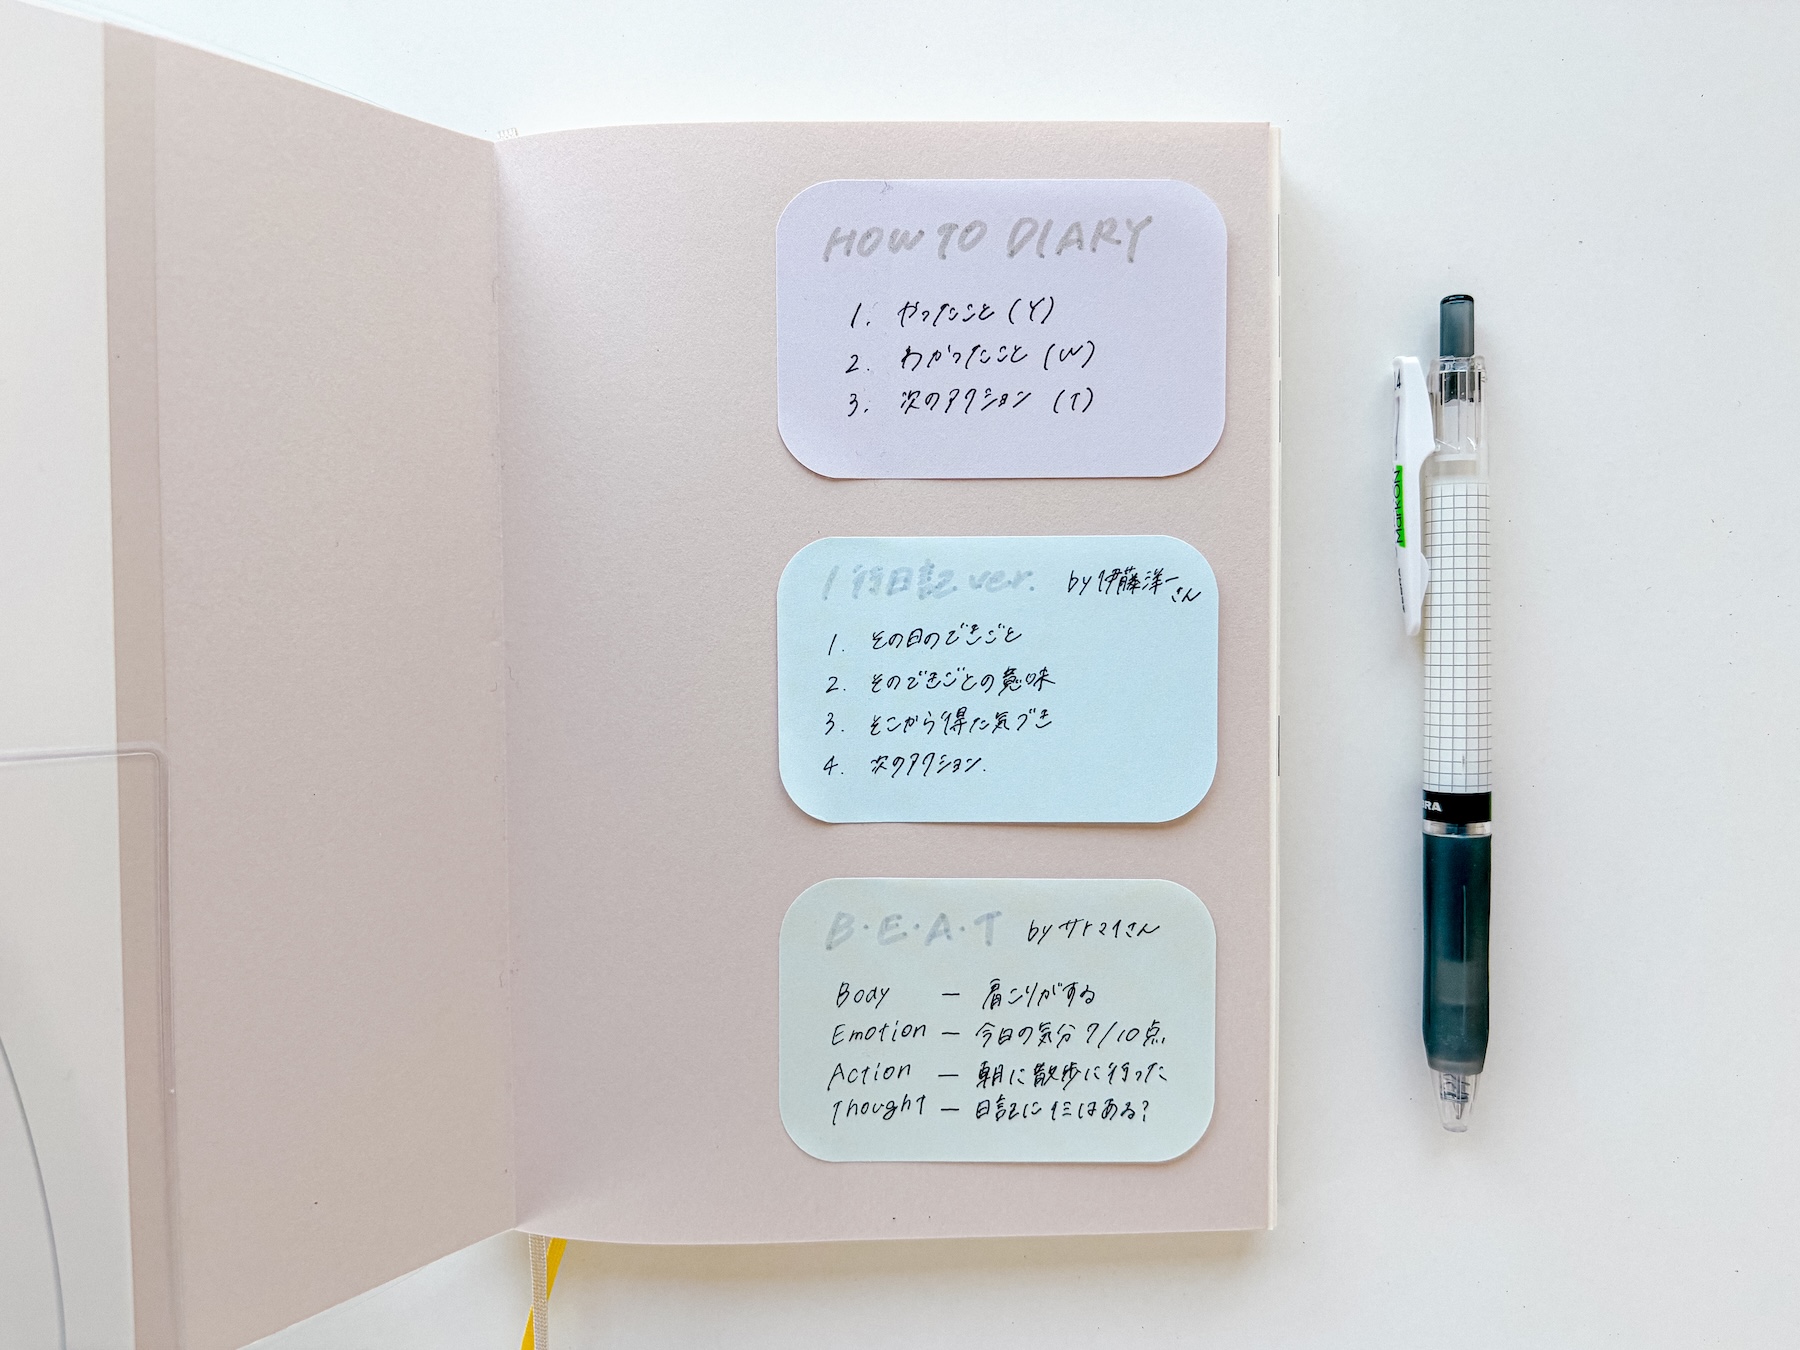 HOW TO DIARY
1. やったこと (Y)
2. わかったこと (W)
3. 次のアクション (T)
1行日記 ver. by 伊藤洋一さん
1. その日のできごと
2. そのできごとの意味
3. そこから得た気づき
4. 次のアクション.
B・E・A・T by サトマイさん
Body — 肩こりがする
Emotion — 今日の気分 7/10点
Action — 朝に散歩に行った
Thought — 日記に
MarkON
4